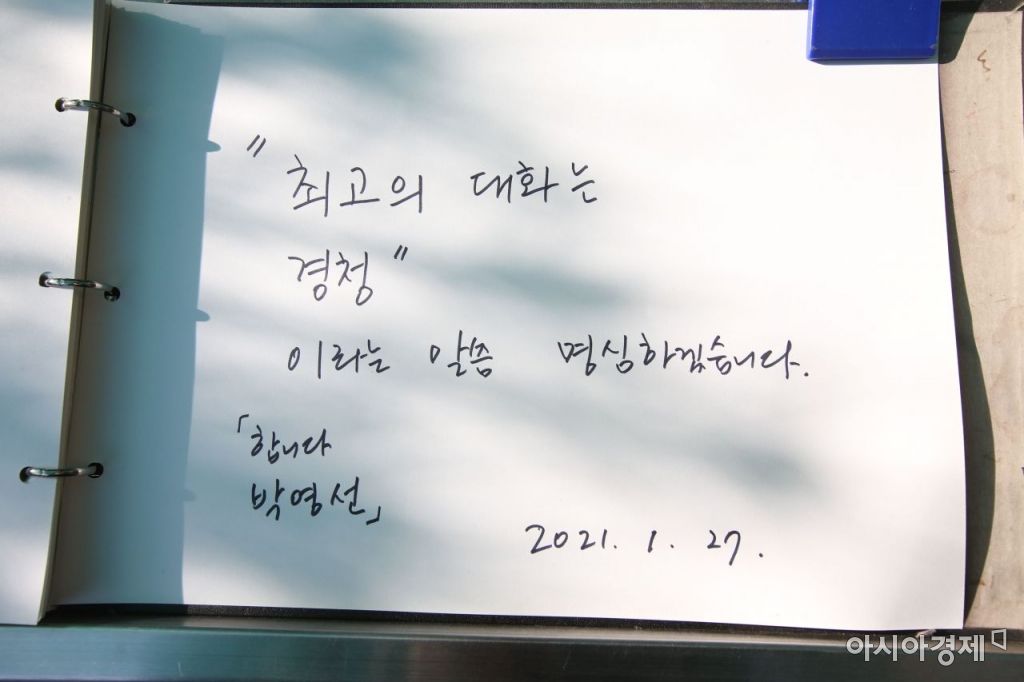 "최고의 대화는
경청"
이라는 말씀 명심하겠습니다.
「합니다
박영선」
2021. 1. 27.
아시아경제